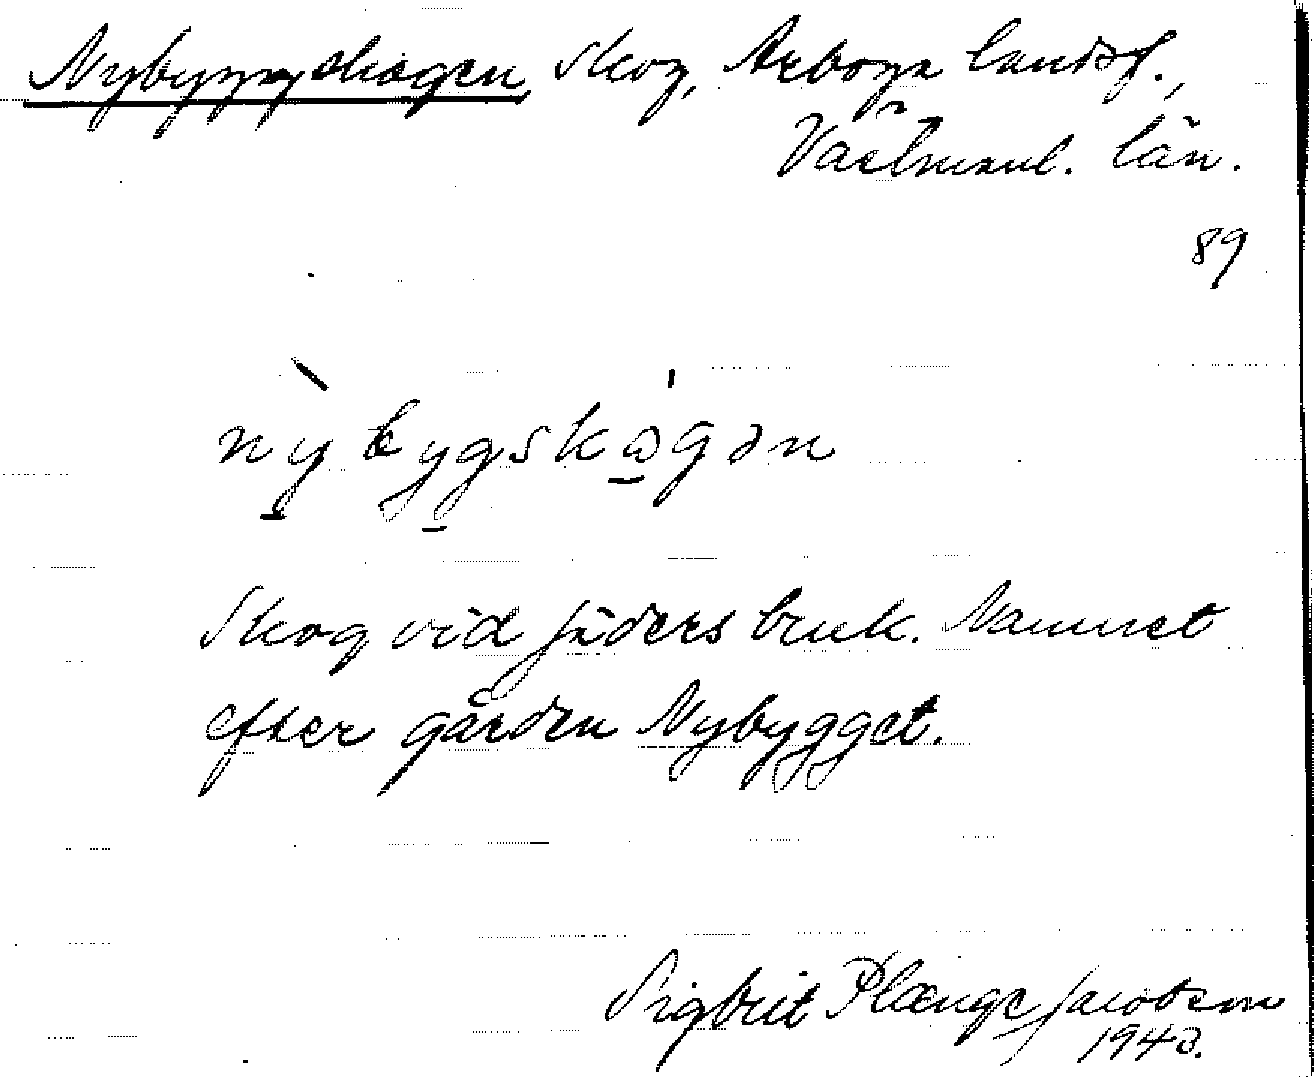 Nybyggskogen, Skog, Arboga landsf.,
Västmanl. län.
89
nybygskogən
Skog vid Jäders bruk. Namnet
efter gården Nybygget.
Sigbrit Plænge Jacobson
1943.